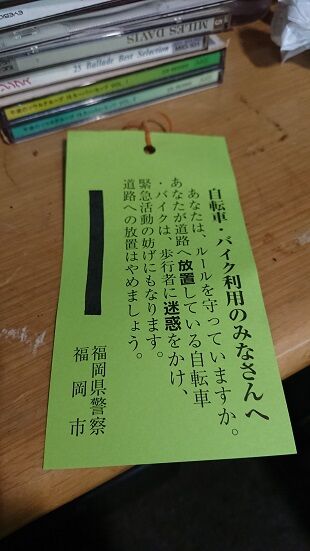 MILES DAVIS
25 Ballade Best Selection
自転車・バイク利用のみなさんへ
あなたは、ルールを守っていますか。
あなたが道路へ放置している自転車
・バイクは、歩行者に迷惑をかけ、
緊急活動の妨げにもなります。
道路への放置はやめましょう。
福岡県警察
福岡市